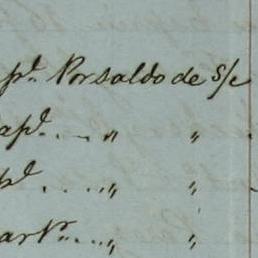 pl. Por saldo de s/c
apl. .... " "
pl. .... " "
arto. .... " "